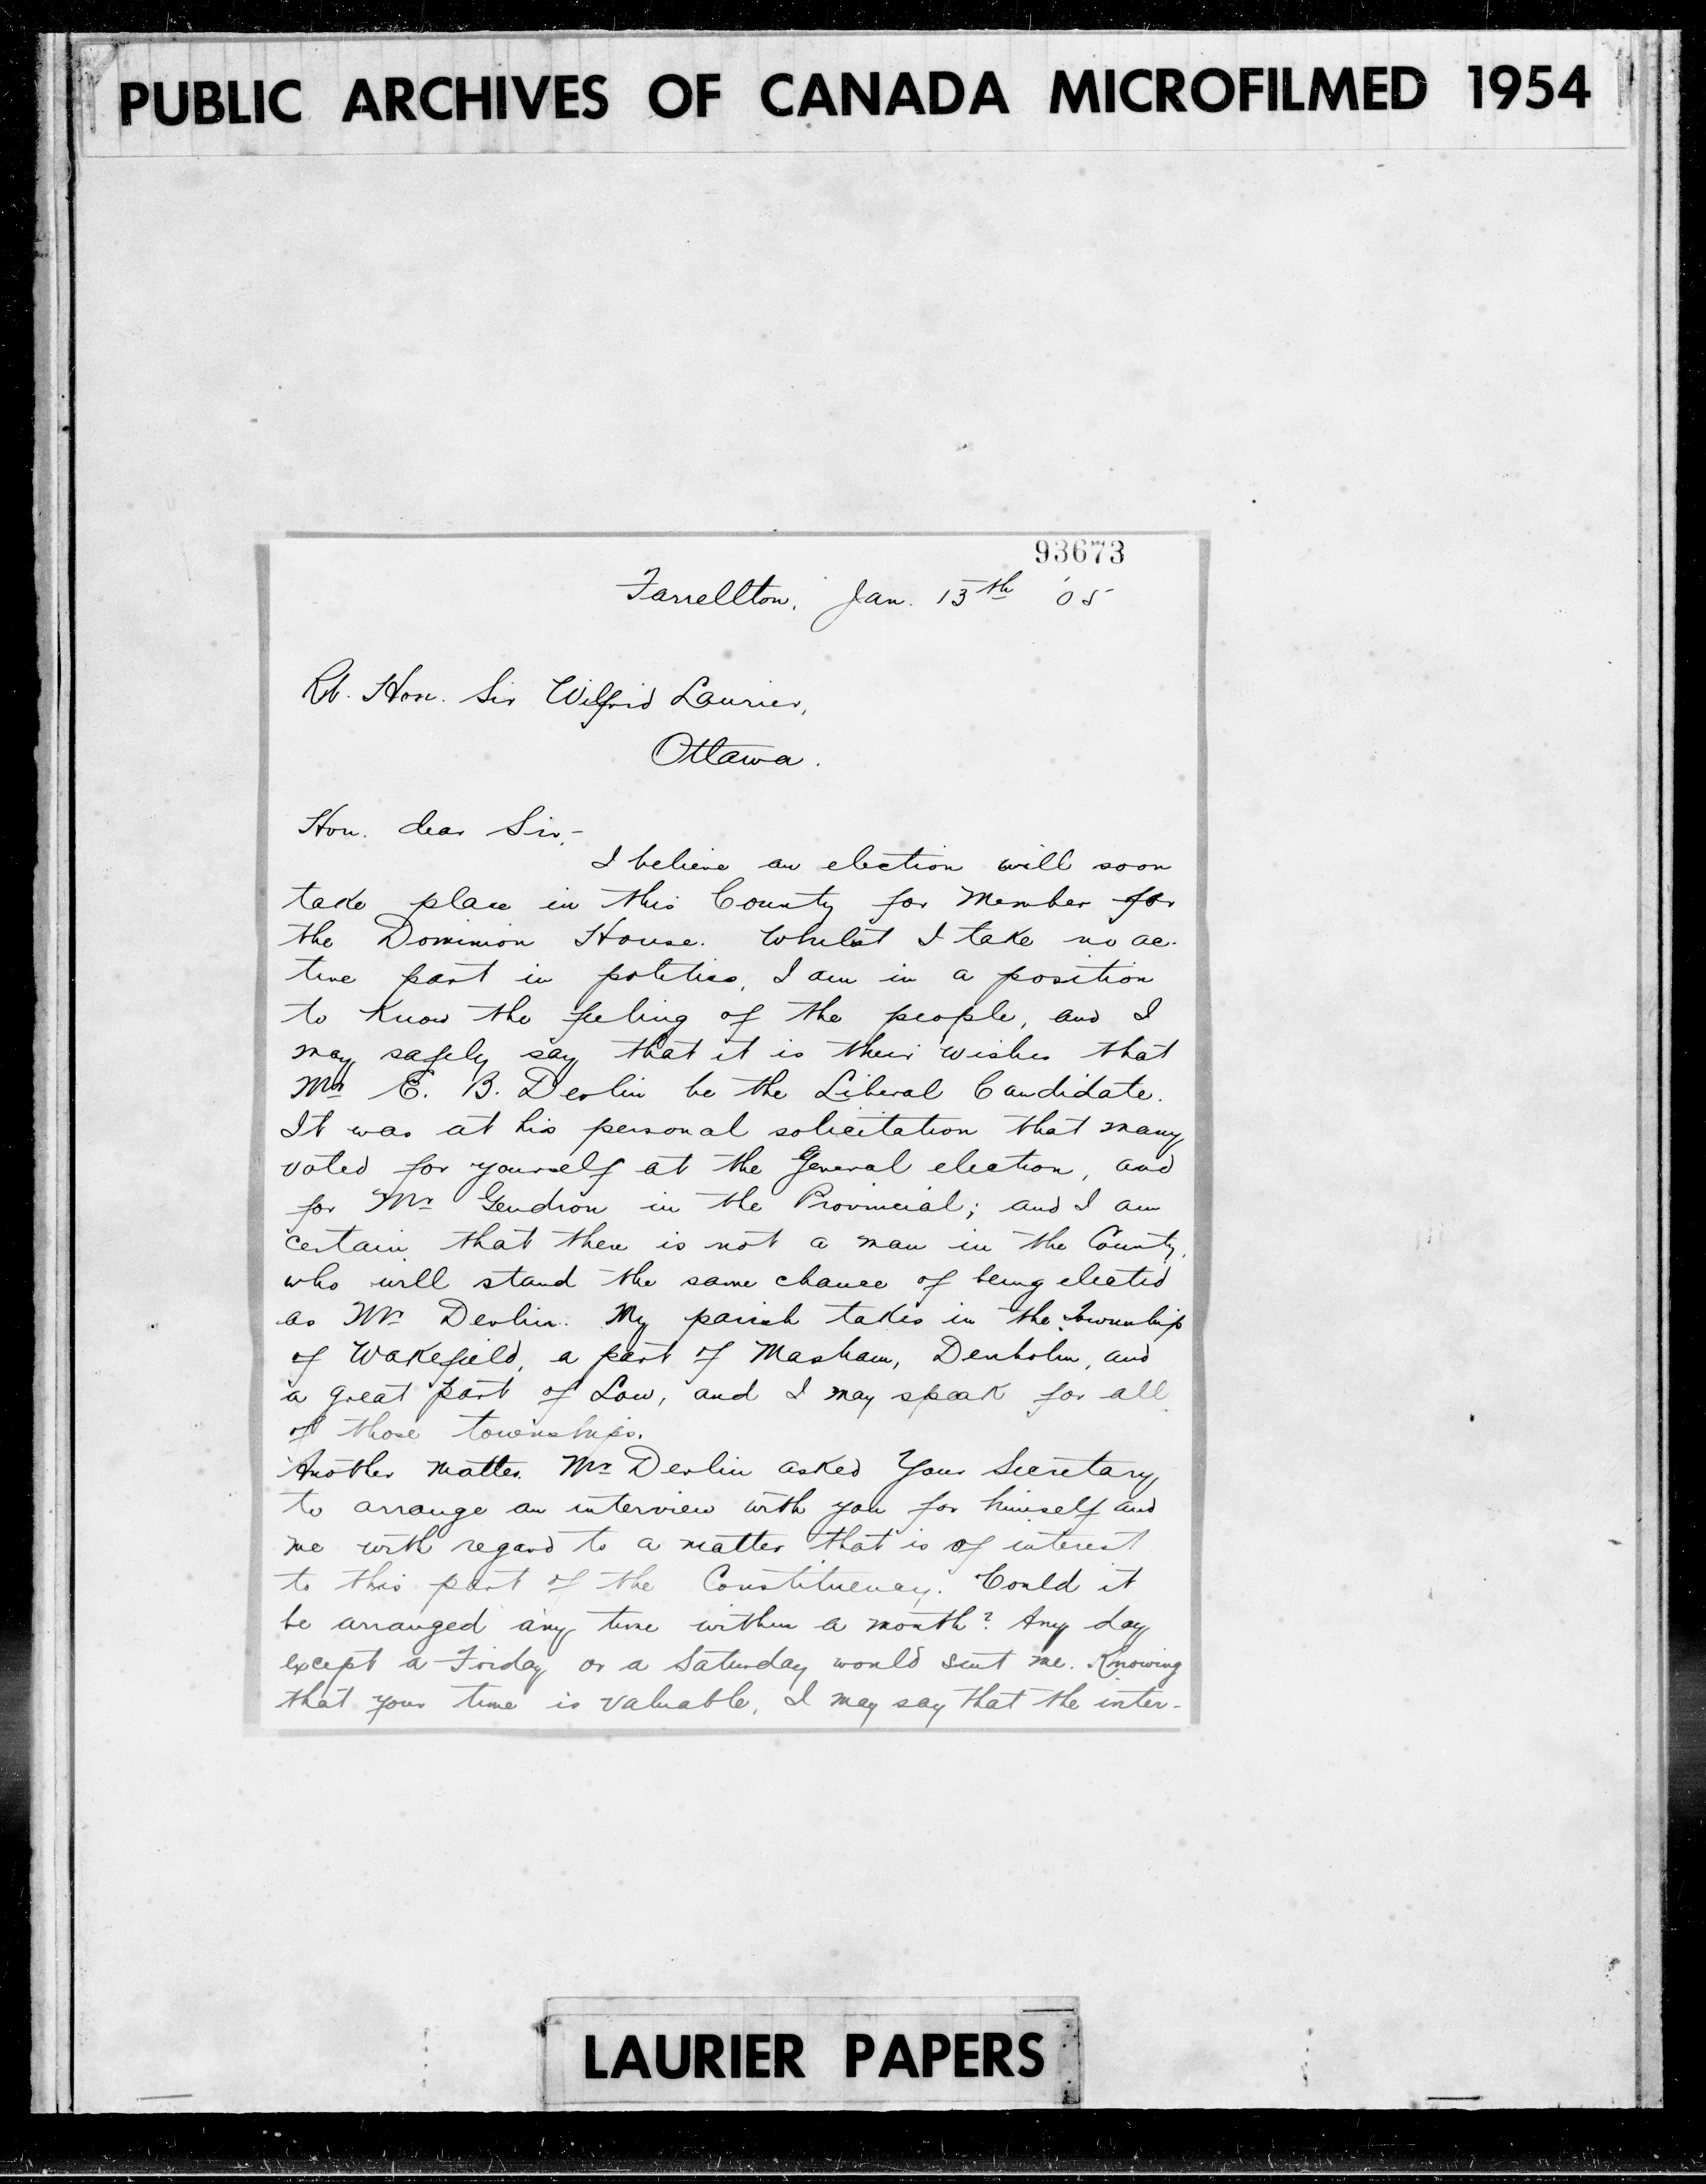 PUBLIC ARCHIVES OF CANADA MICROFILMED 1954
93673
Farrellton, Jan. 13th '05
Rt. Hon. Sir Wilfrid Laurier,
Ottawa.
Hon. dear Sir,-
I believe an election will soon
take place in this County for Member for
the Dominion House. Whilst I take no ac-
tive part in politics, I am in a position
to know the feeling of the people, and I
may safely say that it is their wishes that
Mr E. B. Devlin be the Liberal Candidate.
It was at his personal solicitation that many
voted for yourself at the General election, and
for Mr Gendron in the Provincial; and I am
certain that there is not a man in the County,
who will stand the same chance of being elected
as Mr Devlin. My parish takes in the township
of Wakefield, a part of Masham, Denholm, and
a great part of Low, and I may speak for all
of those townships.
Another matter. Mr Devlin asked Your Secretary
to arrange an interview with you for himself and
me with regard to a matter that is of interest
to this part of the Constituency. Could it
be arranged any time within a month? Any day
except a Friday or a Saturday would suit me. Knowing
that your time is valuable, I may say that the inter-
LAURIER PAPERS